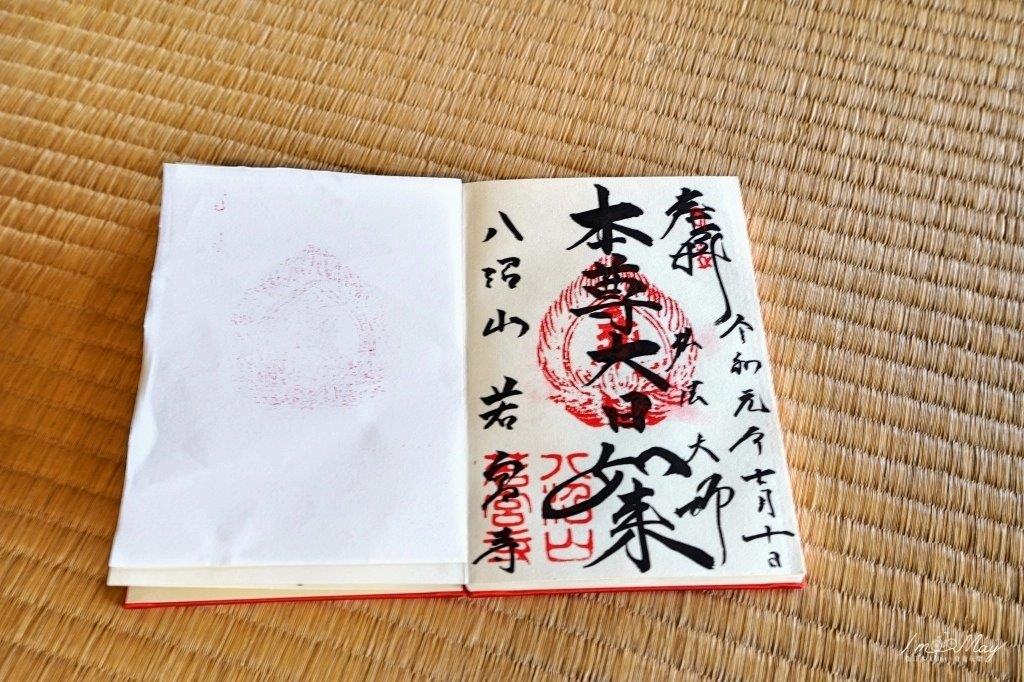 令和元年七月十日
奉拝
弘法大師
本尊大日如来
八沼山 若宮寺
八沼山
若宮寺
I'm May